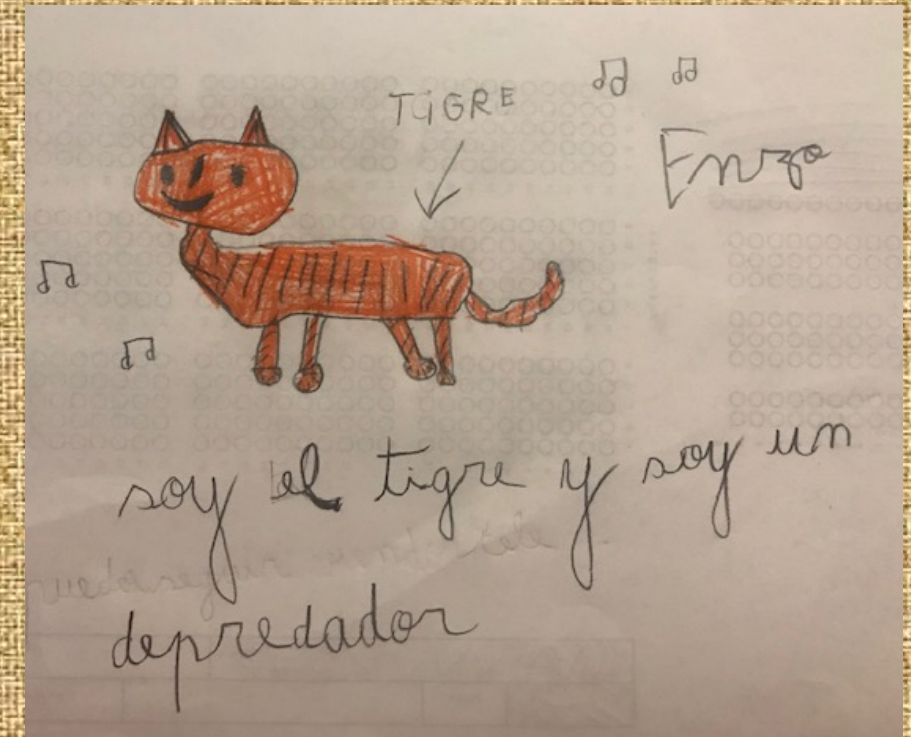 TIGRE
Enzo
soy el tigre y soy un
depredador